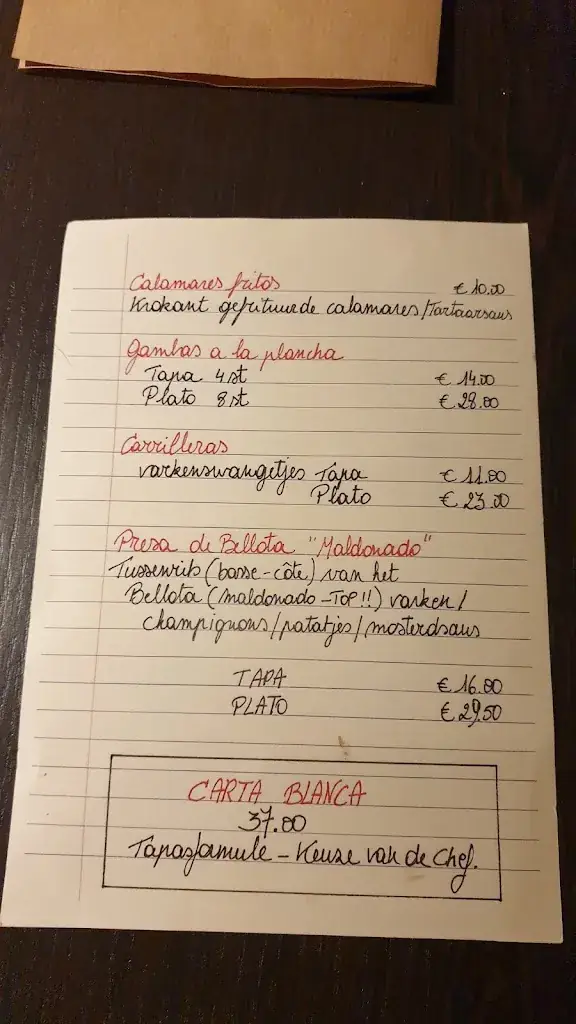 Calamares fritos € 10.00
Krokant gefrituurde calamares/Tartaarsaus
Gambas a la plancha
Tapa 4st € 14.00
Plato 8st € 28.00
Carrilleras
varkenswangetjes Tapa € 11.00
Plato € 23.00
Presa de Bellota "Maldonado"
Tussenrib (basse-côte) van het
Bellota (maldonado-TOP!!) varken/
champignons/patatjes/mosterdsaus
TAPA € 16.00
PLATO € 29.50
CARTA BLANCA
37.00
Tapasformule - Keuze van de Chef.